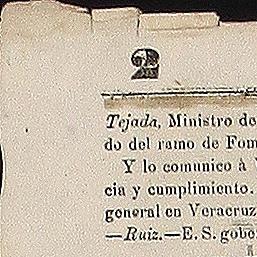 2
Tejada, Ministro de
do del ramo de Fom
Y lo comunico à V
cia y cumplimiento.
general en Veracruz
—Ruiz.—E. S. gober